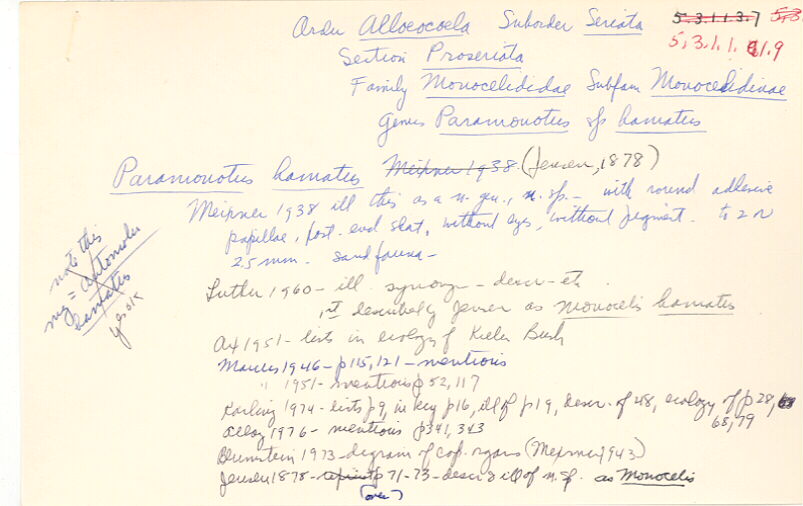 Order Alloeocoela Suborder Seriata 5.3.1.1.3.7 5.3.
5.3.1.1.1.9
Section Proseriata
Family Monocelididae Subfam Monocelidinae
Genus Paramonotus sp hamatus
Paramonotus hamatus Meixner 1938 (Jensen, 1878)
Meixner 1938 ill this as a n. gen., n. sp. - with round adhesive
papillae, post. end flat, without eyes, without pigment. to 2 or
2.5 mm. sand fauna -
note this
may = Automolos
hamatus
yes ok
Luther 1960 - ill. synonyn - descr - etc
1st described by Jensen as Monocelis hamatus
Ax 1951 - lists in ecology of Kieler Buch
Marcus 1946 - p 115, 121 - mentions
" 1951 - mentions p 52, 117
Karling 1974 - lists p9, in key p16, ill of p19, descr. of 48, ecology of p 28,
68, 79
1976 - mentions p341, 343
1973 - diagram of cop. organs (Meixner 1943)
Jensen 1878 - reprint p 71-73 - descr & ill of n. sp. as Monocelis
(over)